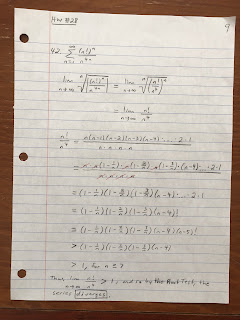 9
HW #28
42. ∞ Σ n=1 (n!)^n / n^4n
lim n→∞ ⁿ√|(n!)^n / n^4n| = lim n→∞ ⁿ√(n!/n^4)^n
= lim n→∞ n!/n^4
n!/n^4 = n(n-1)(n-2)(n-3)(n-4)⋯2·1 / n·n·n·n
= n·n(1-1/n)·n(1-2/n)·n(1-3/n)·(n-4)⋯2·1 / n·n·n·n
= (1-1/n)(1-2/n)(1-3/n)(n-4)⋯2·1
= (1-1/n)(1-2/n)(1-3/n)(n-4)!
= (1-1/n)(1-2/n)(1-3/n)(n-4)(n-5)!
> (1-1/n)(1-2/n)(1-3/n)(n-4)
> 1, for n ≥ 7
Thus, lim n→∞ n!/n^4 > 1, and so by the Root Test, the
series diverges.